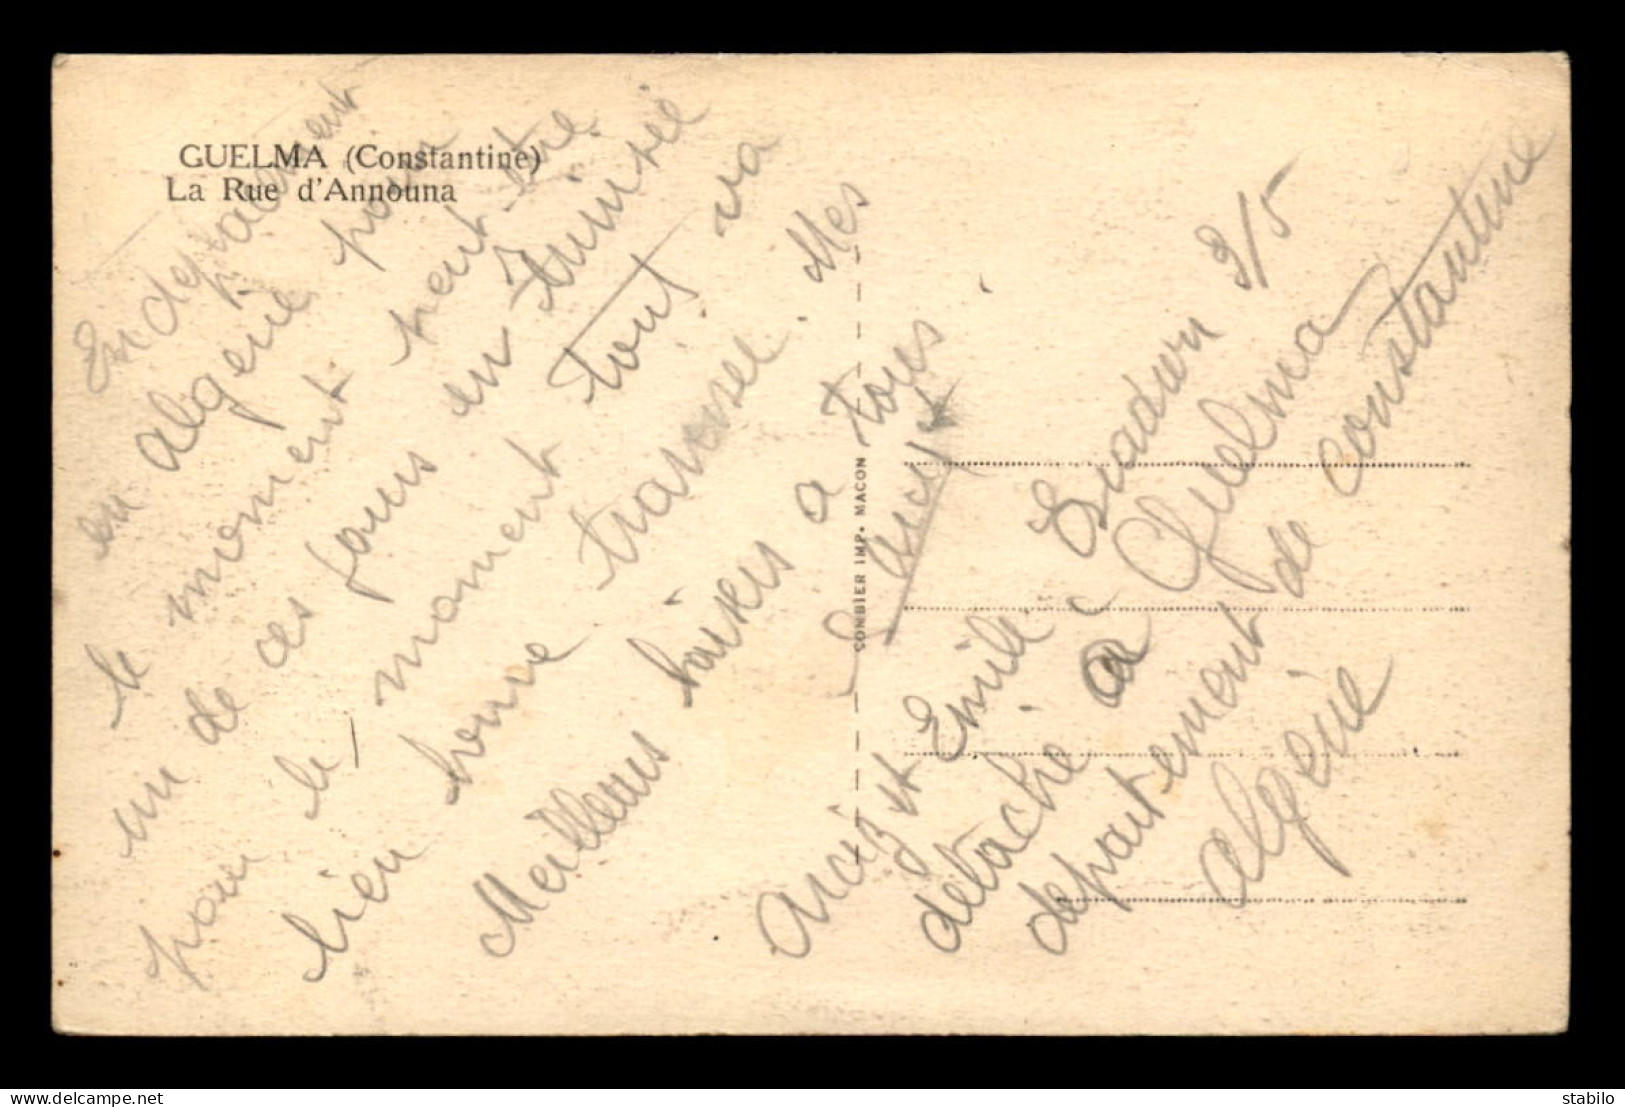 GUELMA (Constantine)
La Rue d'Announa
En deplacement
en algerie pour
le moment peut etre
un de ces jours en Tunisie
pour le moment tout va
bien bonne traversee. Mes
Meilleurs baisers a tous
COMBIER IMP. MACON
Emile Escadron 3/5
détaché a Guelma
departement de constantine
algerie
delcampe.net
stabilo